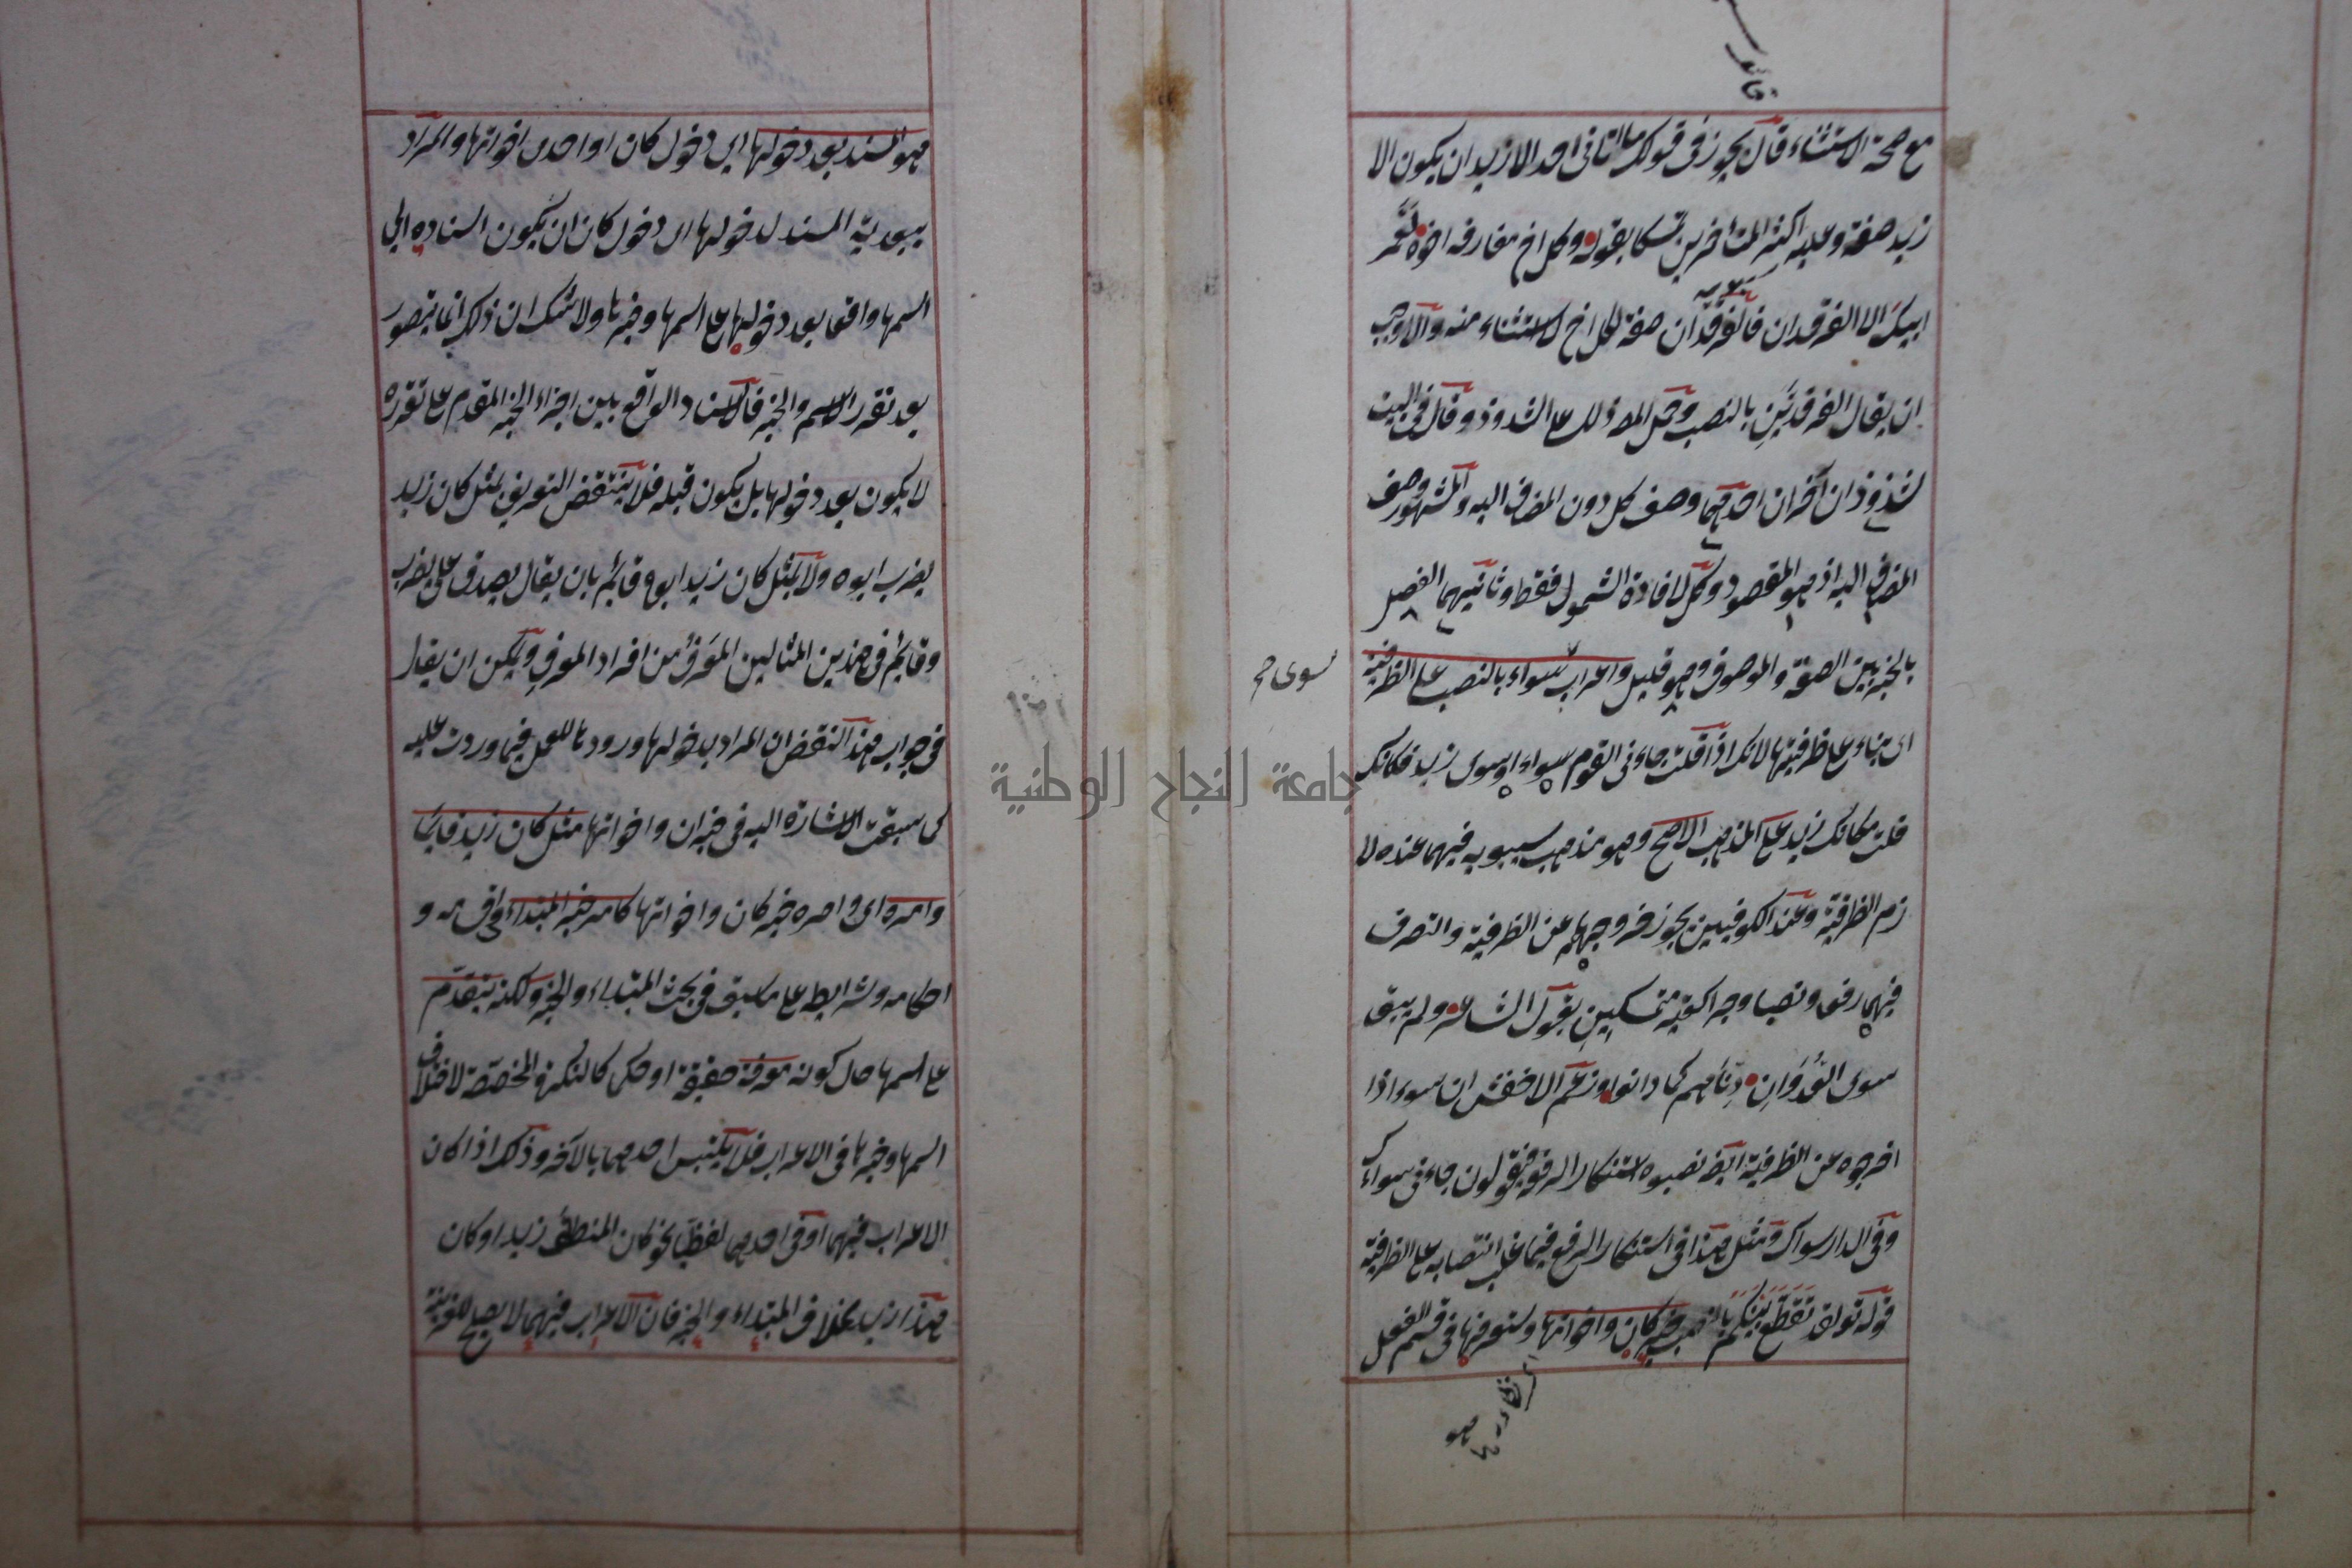 مع صحة الاستثناء قال يجوز فى قولك ما اتانى احد الا زيد ان يكون الا
زيد صفة وعليه اكثر المتأخرين تمسكا بقوله وكل اخ مفارقه اخوه لعمر
ابيك الا الفرقدان فالفرقدان صفة لكل اخ لا استثناء منه والا وجب
سيبويه
ان يقال الفرقدين بالنصب وحمل المص ذلك على الشذوذ وقال فى البيت
شذوذان آخران احدهما وصف كل دون المضاف اليه والمشهور وصف
المضاف اليه اذ هو المقصود وكل لافادة الشمول فقط وثانيهما الفصل
بالخبر بين الصفة والموصوف وهو قليل واعراب سواء بالنصب على الظرفية
سوى صح
اى بناء على ظرفيتها لانك اذا قلت جاءنى القوم سواء او سوى زيد فكانك
قلت مكانك زيد على المذهب الاصح وهو مذهب سيبويه فيهما عنده لا
زم الظرفية وعند الكوفيين يجوز خروجهما عن الظرفية والتصرف
فيهما رفعا ونصبا وجرا كغير متمسكين بقول الشاعر ولم يبق
سوى العدوان دناهم كما دانوا وزعم الاخفش ان سواء اذا
اخرجوه عن الظرفية ايضا نصبوه استنكارا لرفعه فيقولون جاءنى سواءك
وفى الدار سواءك ومثل هذا فى استنكار الرفع فيما غلب انتصابه على الظرفية
قوله تعالى لقد تقطع بينكم بالنصب خبر كان واخواتها وستعرفها فى قسم الفعل
هو المسند بعد دخولها اى دخول كان او احدى اخواتها والمراد
ببعدية المسند لدخولها اى دخول كان ان يكون اسناده الى
اسمها واقعا بعد دخولها على اسمها وخبرها ولا شك ان ذلك انما يتصور
بعد تقرر الاسم والخبر فالاسناد الواقع بين اجزاء الخبر المقدم على تقرره
لا يكون بعد دخولها بل يكون قبله فلا ينتقض التعريف بمثل كان زيد
يضرب ابوه ولا بمثل كان زيد ابوه قائم بان يقال يصدق على يضرب
وقائم فى هذين المثالين المعرف من افراد المعرف ويمكن ان يقال
فى جواب هذا النقض ان المراد بدخولها ورودها للعمل فيما وردت عليه
كما سبقت الاشارة اليه فى خبر ان واخواتها مثل كان زيد قائما
وامره اى وامره خبر كان واخواتها كامر خبر المبتداء فى اقسامه و
احكامه وشرائطه على ما سبق فى بحث المبتداء والخبر ولكنه يتقدم
على اسمها حال كونه معرفة حقيقة او حكما كالنكرة المخصصة لاختلاف
اسمها وخبرها فى الاعراب فلا يلتبس احدهما بالآخر وذلك اذا كان
الاعراب فيهما او فى احدهما لفظيا نحو كان المنطلق زيد او كان
هذا زيد بخلاف المبتداء والخبر فان الاعراب فيهما لا يصلح للقرينة
جامعة النجاح الوطنية